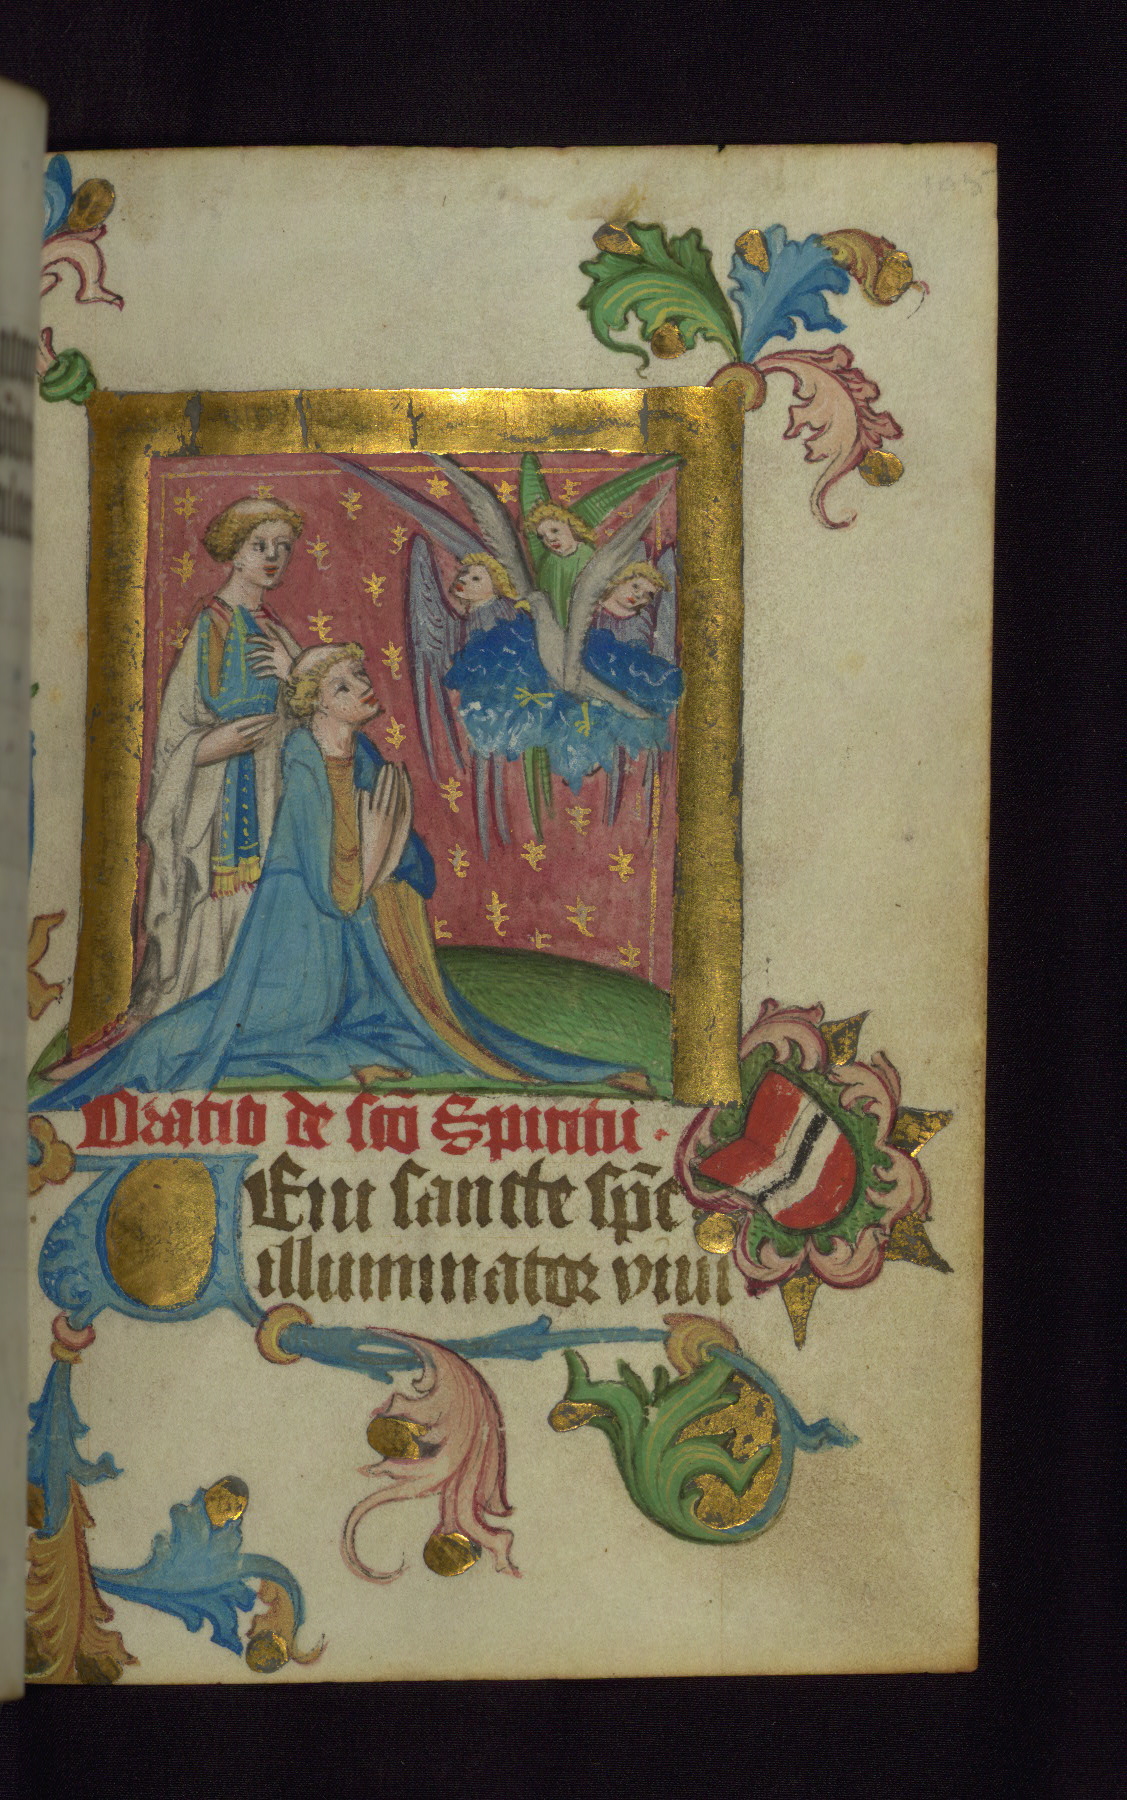 Oratio de sc̄o Spiritu ·
Eni sancte sp̄c
illuminator viui